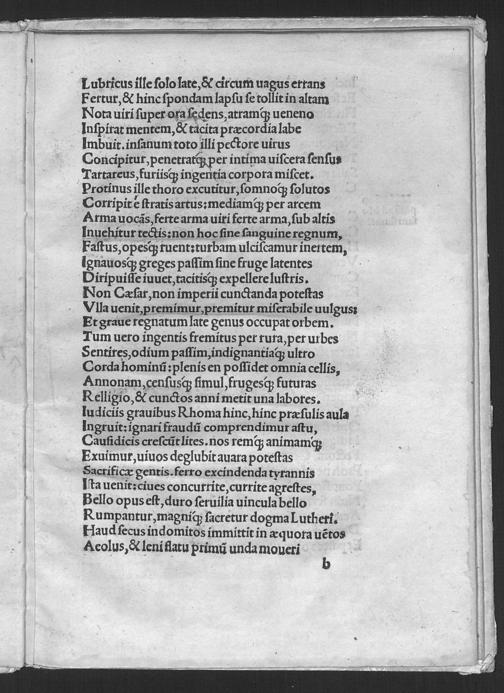 Lubricus ille solo late, & circum uagus errans
Fertur, & hinc spondam lapsu se tollit in altam
Nota uiri super ora sedens, atramqꝫ ueneno
Inspirat mentem, & tacita præcordia labe
Imbuit. insanum toto illi pectore uirus
Concipitur, penetratqꝫ per intima uiscera sensus
Tartareus, furiisqꝫ ingentia corpora miscet.
Protinus ille thoro excutitur, somnoqꝫ solutos
Corripit ē stratis artus: mediamqꝫ per arcem
Arma uocãs, ferte arma uiri ferte arma, sub altis
Inuehitur tectis: non hoc sine sanguine regnum,
Fastus, opesqꝫ ruent: turbam ulciscamur inertem,
Ignauosqꝫ greges passim sine fruge latentes
Diripuisse iuuet, tacitisqꝫ expellere lustris.
Non Cæsar, non imperii cunctanda potestas
Vlla uenit, premimur, premitur miserabile uulgus:
Et graue regnatum late genus occupat orbem.
Tum uero ingentis fremitus per rura, per urbes
Sentires, odium passim, indignantiaqꝫ ultro
Corda hominũ: plenis en possidet omnia cellis,
Annonam, censusqꝫ simul, frugesqꝫ futuras
Relligio, & cunctos anni metit una labores.
Iudiciis grauibus Rhoma hinc, hinc præsulis aula
Ingruit: ignari fraudũ comprendimur astu,
Causidicis crescũt lites. nos remqꝫ animamqꝫ
Exuimur, uiuos deglubit auara potestas
Sacrificæ gentis. ferro excindenda tyrannis
Ista uenit: ciues concurrite, currite agrestes,
Bello opus est, duro seruilia uincula bello
Rumpantur, magniqꝫ sacretur dogma Lutheri.
Haud secus indomitos immittit in æquora uẽtos
Aeolus, & leni flatu primũ unda moueri
b